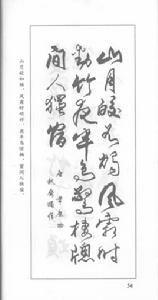 山月皎如燭風霜時
動竹夜半鳥驚棲窗
間人獨宿
韋應物
秋齋獨宿
山月皎如燭，風霜時動竹，夜半鳥驚棲，窗間人獨宿。
54